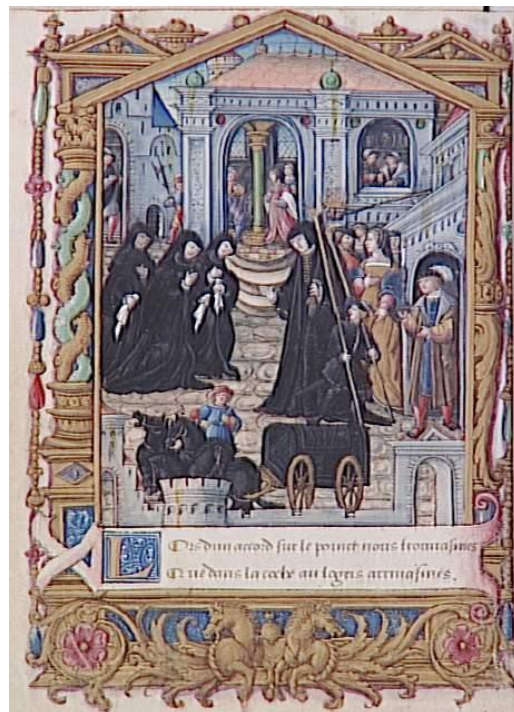 Lors dun accord sur le poinct nous trouuasmes
Que dans la coche au logeis arriuasmes.